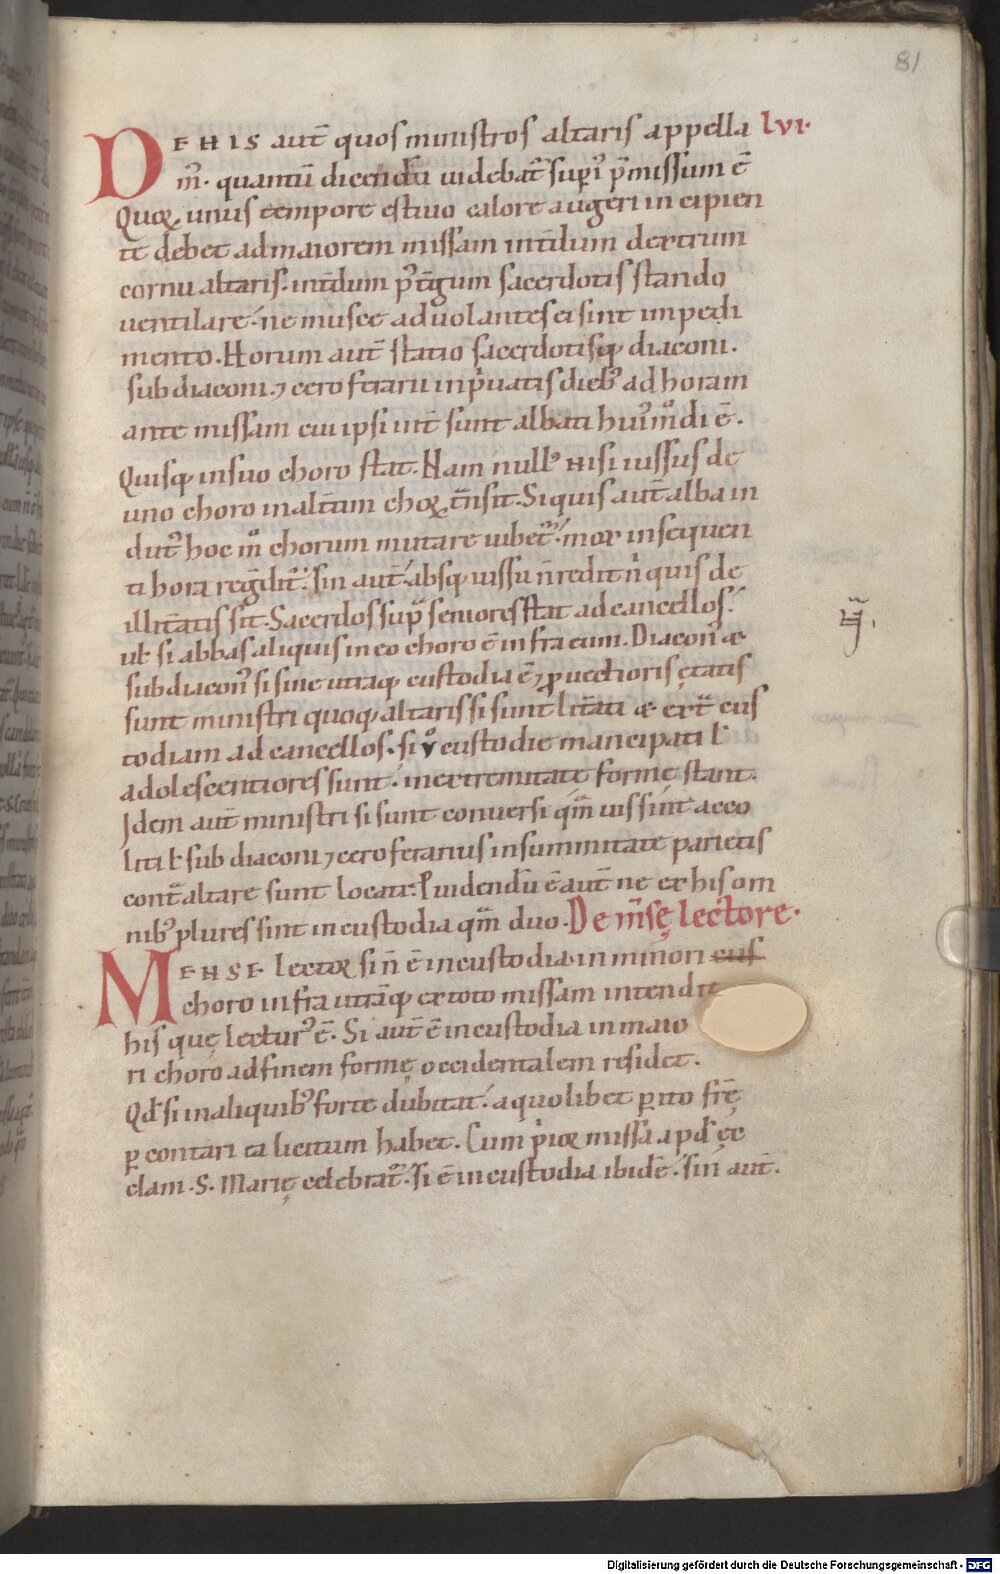 81
DE HIS aut̄ quos ministros altaris appella lvi.
m̄. quantū dicendū videbat᷒ sup̄i᷒ p̄missum ē
Quoꝝ unus tempore estivo calore augeri incipien
te debet ad maiorem missam int̄dum dextrum
cornu altaris. int̄dum p̄t̄gum sacerdotis stando
ventilare. ne musce advolantes ei sint impedi
mento. Horum aut̄ statio sacerdotisq; diaconi.
subdiaconi. ⁊ ceroferarii in p̄vatis dieb᷒ ad horam
ante missam cui ipsi int̄ sunt albati hui᷒modi ē.
Quisq; in suo choro stat. Nam null᷒ nisi iussus de
uno choro in alt̄um choꝝ t̄nsit. Si quis aut̄ alba in
dut᷒ hoc m̊ chorum mutare iubet᷒. mox in sequen
ti hora reḡdit᷒. Sin aut̄ absq; iussu n̄ redit n̄ quis de
illit̄atis sit. Sacerdos sup̄ seniores stat ad cancellos.
ut̄ si abbas aliquis in eo choro ē infra eum. Diacon᷒ æ
subdiacon᷒ si sine utraq; custodia ē ⁊ ꝓvectioris ętatis
sunt ministri quoq; altaris si sunt litt̄ati æ ext̄ cus
todiam ad cancellos. si v̊ custodie mancipati ł
adolescentiores sunt. in extremitate formę stant.
Idem aut̄ ministri si sunt conversi qm̄ vis sint acco
liti ł subdiaconi ⁊ ceroferarius in summitate parietis
cont̄ altare sunt locati. P̄videndū ē aut̄ ne ex his om
nib᷒ plures sint in custodia qm̄ duo. De m̄sę lectore.
MENSE lectoꝝ si n̄ ē in custodia in minori cus
choro infra utrāq; ex toto missam intendit
his quę lectur᷒ ē. Si aut̄ ē in custodia in maio
ri choro ad finem formę occidentalem residet.
Qd̄ si in aliquib᷒ forte dubitat. a quolibet ꝑito fr̄ę
ꝑcontari ea licitum habet. Cum p̄ioꝝ missa apd̄ ęc
clam. S. Marię celebrat᷒. si ē in custodia ibidē. sin aut̄.
Digitalisierung gefördert durch die Deutsche Forschungsgemeinschaft - DFG